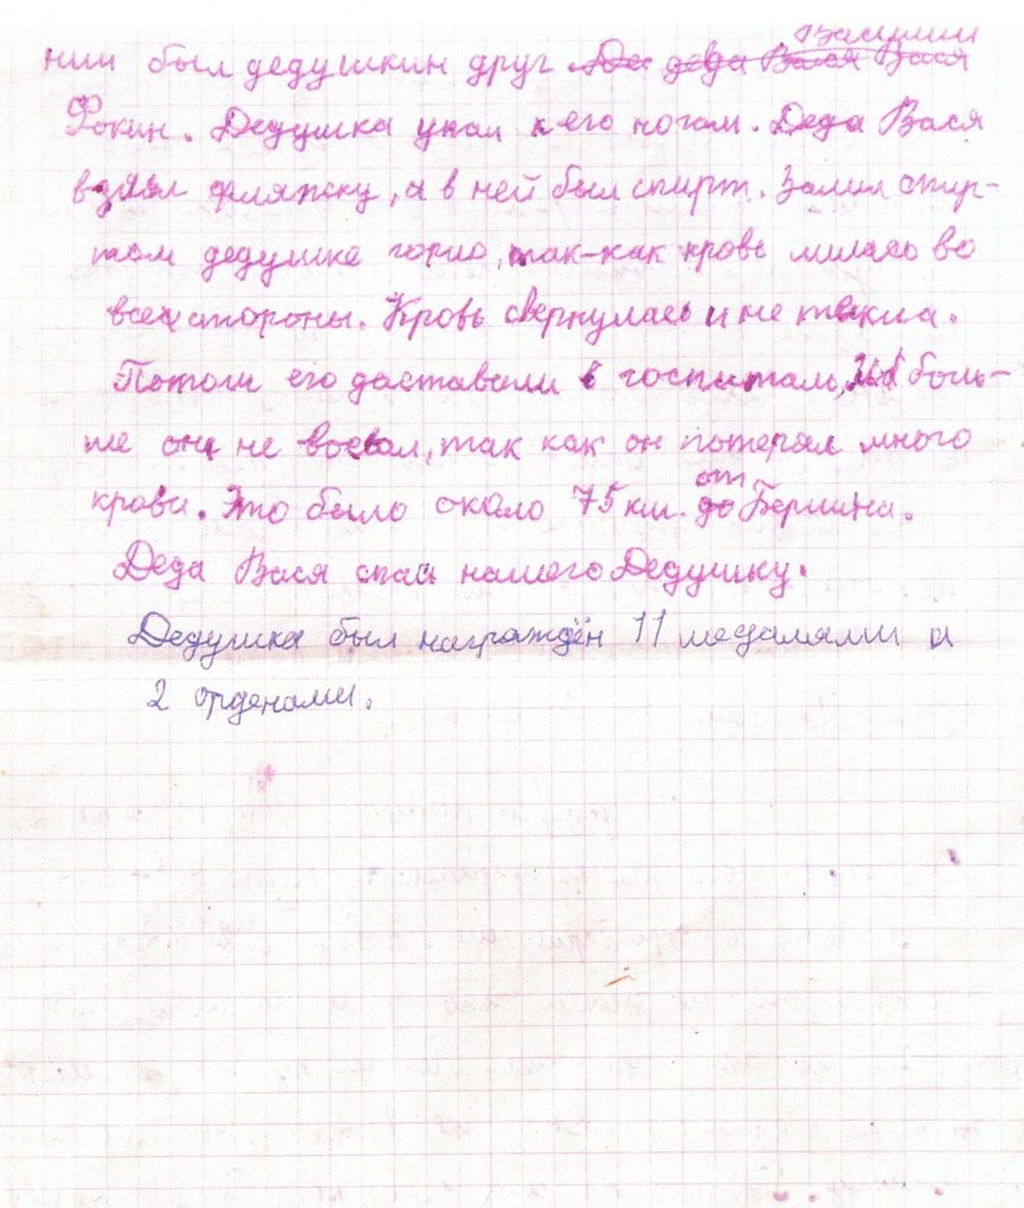 нии был дедушкин друг Василий
Фокин. Дедушка упал к его ногам. Деда Вася
взял фляжку, а в ней был спирт. Залил спир-
том дедушке горло, так-как кровь лилась во
всех стороны. Кровь свернулась и не текла.
Потом его доставили в госпиталь, И боль-
ше он не воевал, так как он потерял много
крови. Это было около 75 км. от Берлина.
Деда Вася спас нашего Дедушку.
Дедушка был награждён 11 медалями и
2 орденами.